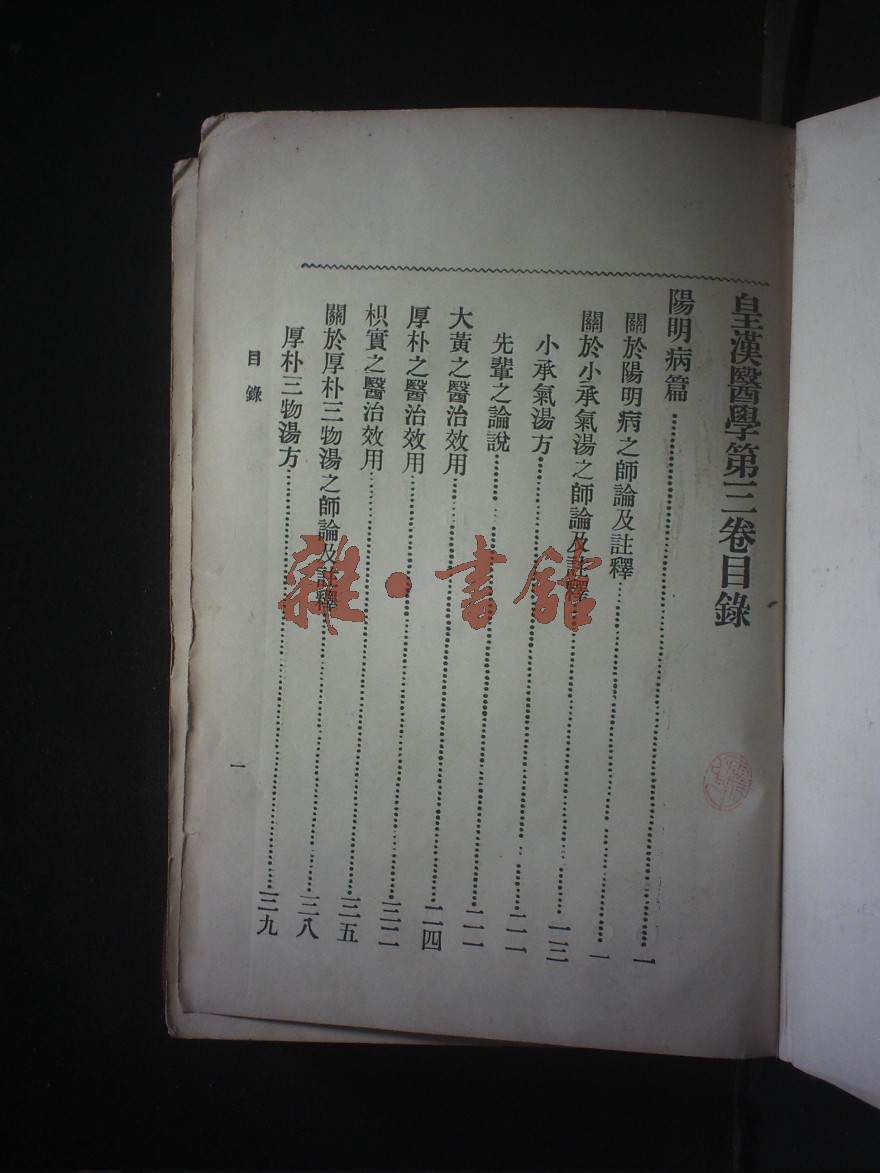 皇漢醫學第三卷目錄
陽明病篇……一
關於陽明病之師論及註釋……一
關於小承氣湯之師論及註釋……一三
小承氣湯方……二一
先輩之論說……二一
大黃之醫治效用……二四
厚朴之醫治效用……三二
枳實之醫治效用……三五
關於厚朴三物湯之師論及註釋……三八
厚朴三物湯方……三九
目錄
一
雜·書館